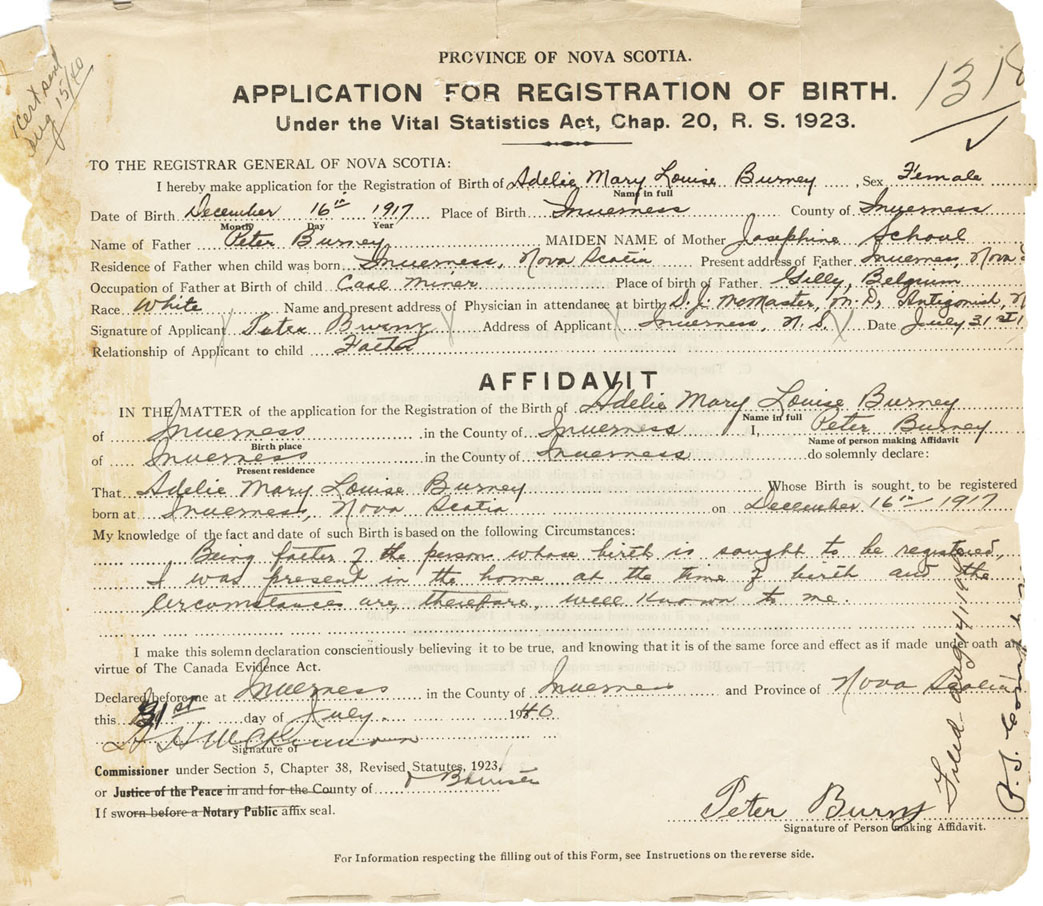 PROVINCE OF NOVA SCOTIA.
131
APPLICATION FOR REGISTRATION OF BIRTH.
Under the Vital Statistics Act, Chap. 20, R. S. 1923.
Cert send
Aug 15/40
TO THE REGISTRAR GENERAL OF NOVA SCOTIA:
I hereby make application for the Registration of Birth of Adelie Mary Louise Burney, Sex Female
Name in full
Date of Birth December 16th 1917 Place of Birth Inverness County of Inverness
Month Day Year
Name of Father Peter Burney MAIDEN NAME of Mother Josephine School
Residence of Father when child was born Inverness, Nova Scotia Present address of Father Inverness, Nova
Occupation of Father at Birth of child Coal Miner Place of birth of Father Gilly, Belgium
Race White Name and present address of Physician in attendance at birth D. J. McMaster, M. D, Antigonish, N
Signature of Applicant Peter Burny Address of Applicant Inverness, N. S. Date July 31st
Relationship of Applicant to child Father
AFFIDAVIT
IN THE MATTER of the application for the Registration of the Birth of Adelie Mary Louise Burney
Name in full
of Inverness in the County of Inverness I, Peter Burney
Birth place Name of person making Affidavit
of Inverness in the County of Inverness do solemnly declare:
Present residence
That Adelie Mary Louise Burney Whose Birth is sought to be registered
born at Inverness, Nova Scotia on December 16th 1917
My knowledge of the fact and date of such Birth is based on the following Circumstances:
Being father of the person whose birth is sought to be registered,
I was present in the home at the time of birth and the
circumstances are, therefore, well known to me.
I make this solemn declaration conscientiously believing it to be true, and knowing that it is of the same force and effect as if made under oath
virtue of The Canada Evidence Act.
Declared before me at Inverness in the County of Inverness and Province of Nova Scotia
this 31st day of July 1940
Signature of
Commissioner under Section 5, Chapter 38, Revised Statutes, 1923,
or Justice of the Peace in and for the County of Barrister
If sworn before a Notary Public affix seal.
Peter Burny
Signature of Person making Affidavit.
Filed Aug 14/1940
For Information respecting the filling out of this Form, see Instructions on the reverse side.